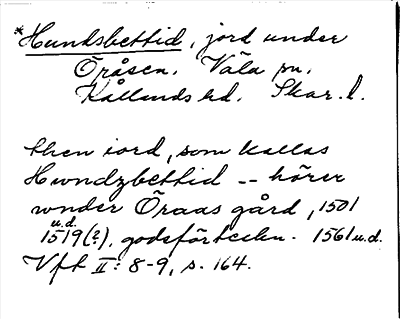 *Hundsbettid, jord under
Öråsen. Väla sn.
Kållands hd. Skar. l.
then iord, som kallas
Hwndzbettid -- hörer
wnder Öraas gård, 1501
u.d.
1519(?), godsförteckn. 1561 u.d.
Vft II: 8-9, s. 164.